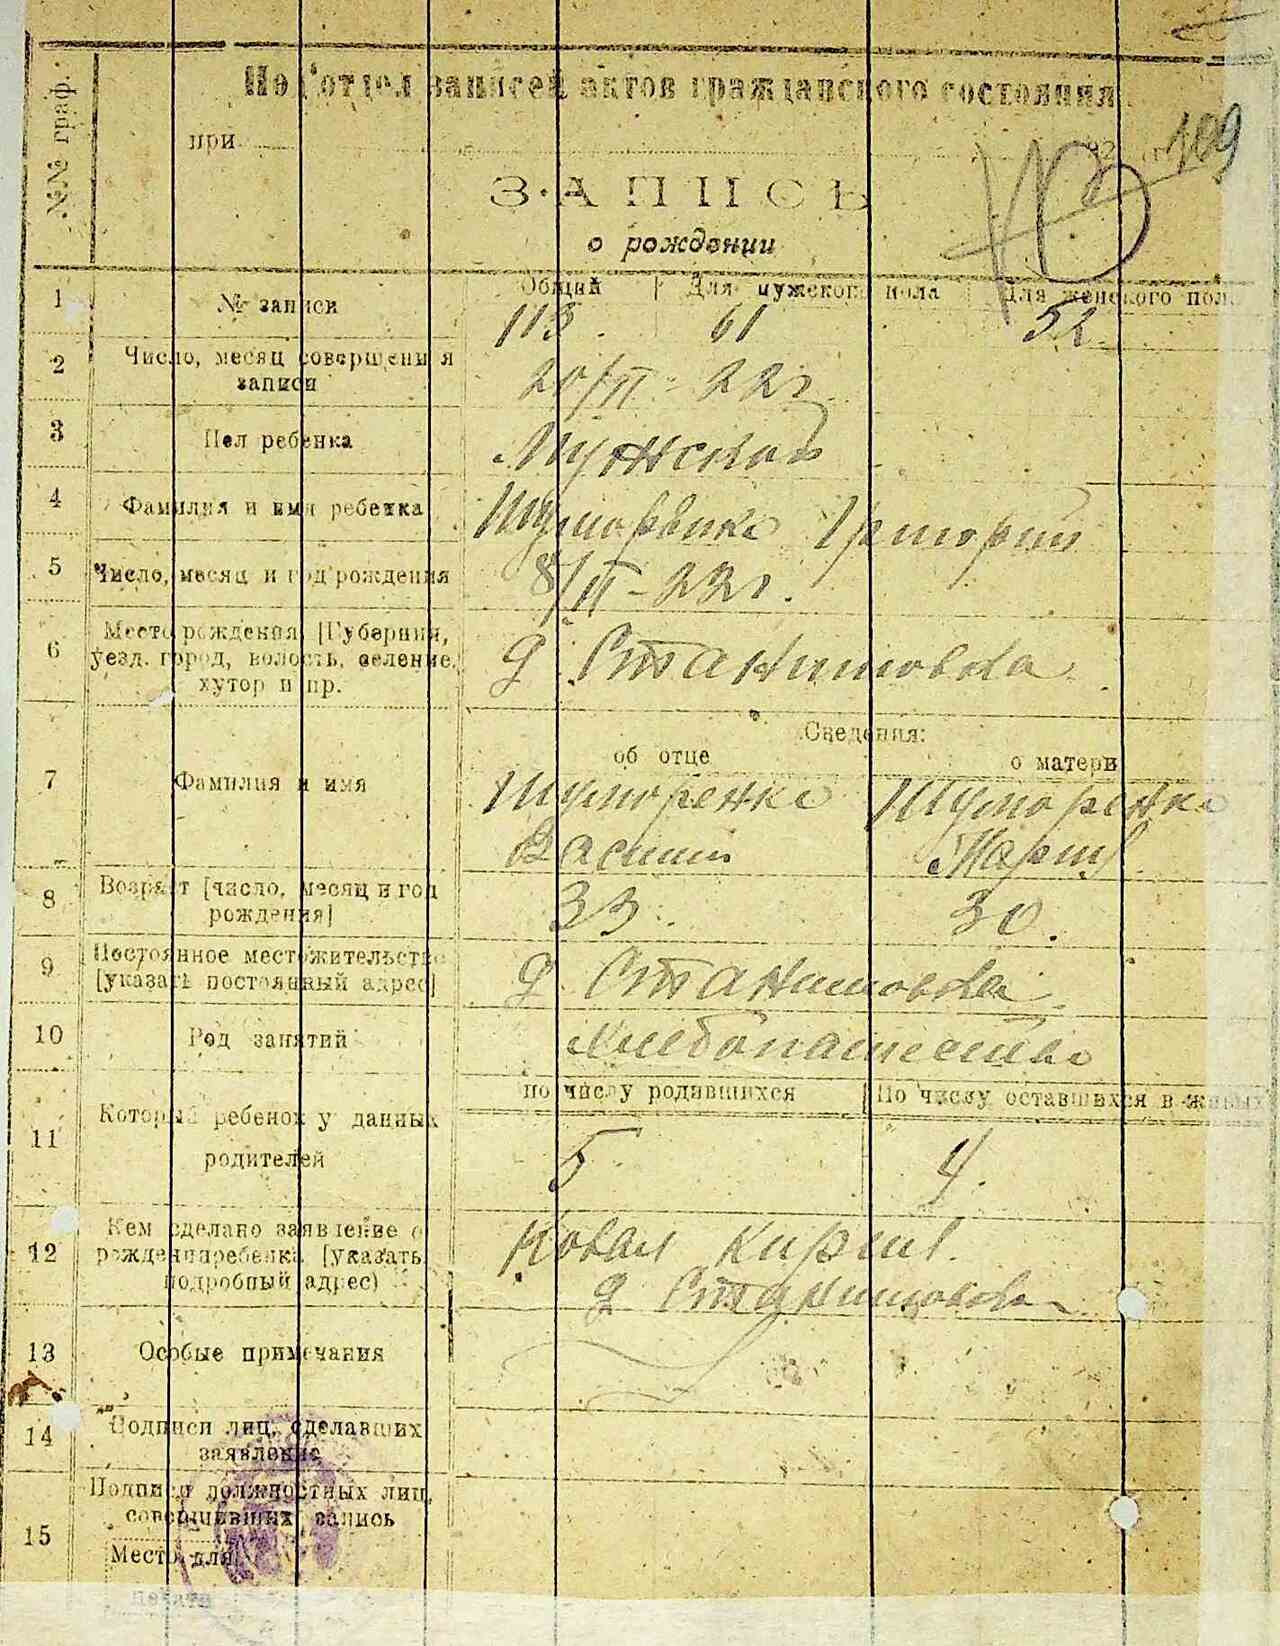 №№ граф.
Подотдел записей актов гражданского состояния
при 192 г. 109
ЗАПИСЬ
о рождении
1 № записи Общий Для мужского пола Для женского пола
113 61 52
2 Число, месяц совершения записи 20/II - 22 г.
3 Пол ребенка Мужской
4 Фамилия и имя ребенка Шуморенко Григорий
5 Число, месяц и год рождения 8/II - 22 г.
6 Место рождения [Губерния,
уезд. город, волость, селение, д. Станишовка
хутор и пр.
Сведения:
об отце о матери
7 Фамилия и имя Шуморенко Шуморенко
Василий Мария
8 Возраст [число, месяц и год
рождения] 33. 30.
9 Постоянное местожительство
[указать постоянный адрес] д Станишовка
10 Род занятий Хлебопашество
по числу родившихся По числу оставшихся в живых
11 Который ребенок у данных
родителей 5 4.
12 Кем сделано заявление о Коваль Кирил.
рождении ребенка [указать
подробный адрес) д Станишовка
13 Особые примечания
14 Подписи лиц, сделавших
заявление
15 Подписи должностных лиц,
совершивших запись
Место для
печати